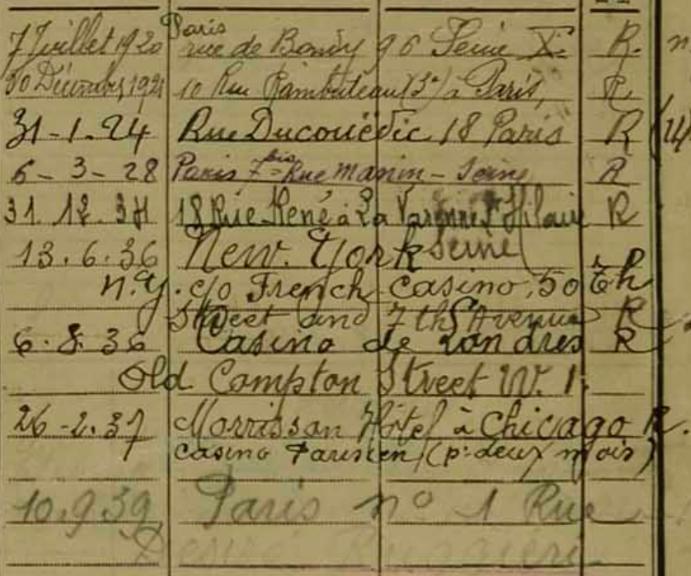 Paris
7 Juillet 1920 rue de Bondy 96 Seine X. R.
30 Décembre 1921 10 Rue Rambuteau (3e) à Paris, R
31-1.24 Rue Ducouëdic 18 Paris R
6-3-28 Paris 7 bis Rue Manin - Seine R
31.12.34 18 Rue René à La Varenne St Hilaire R
Seine
13.6.36 New. York R
N.Y. c/o French Casino, 50 th
Street and 7th Avenue R
6.8.36 Casino de Londres R
Old Compton Street W.1.
26-2.37 Morrisson Hôtel à Chicago R.
Casino Parisien (pr deux mois)
10.9.39 Paris no 1 Rue